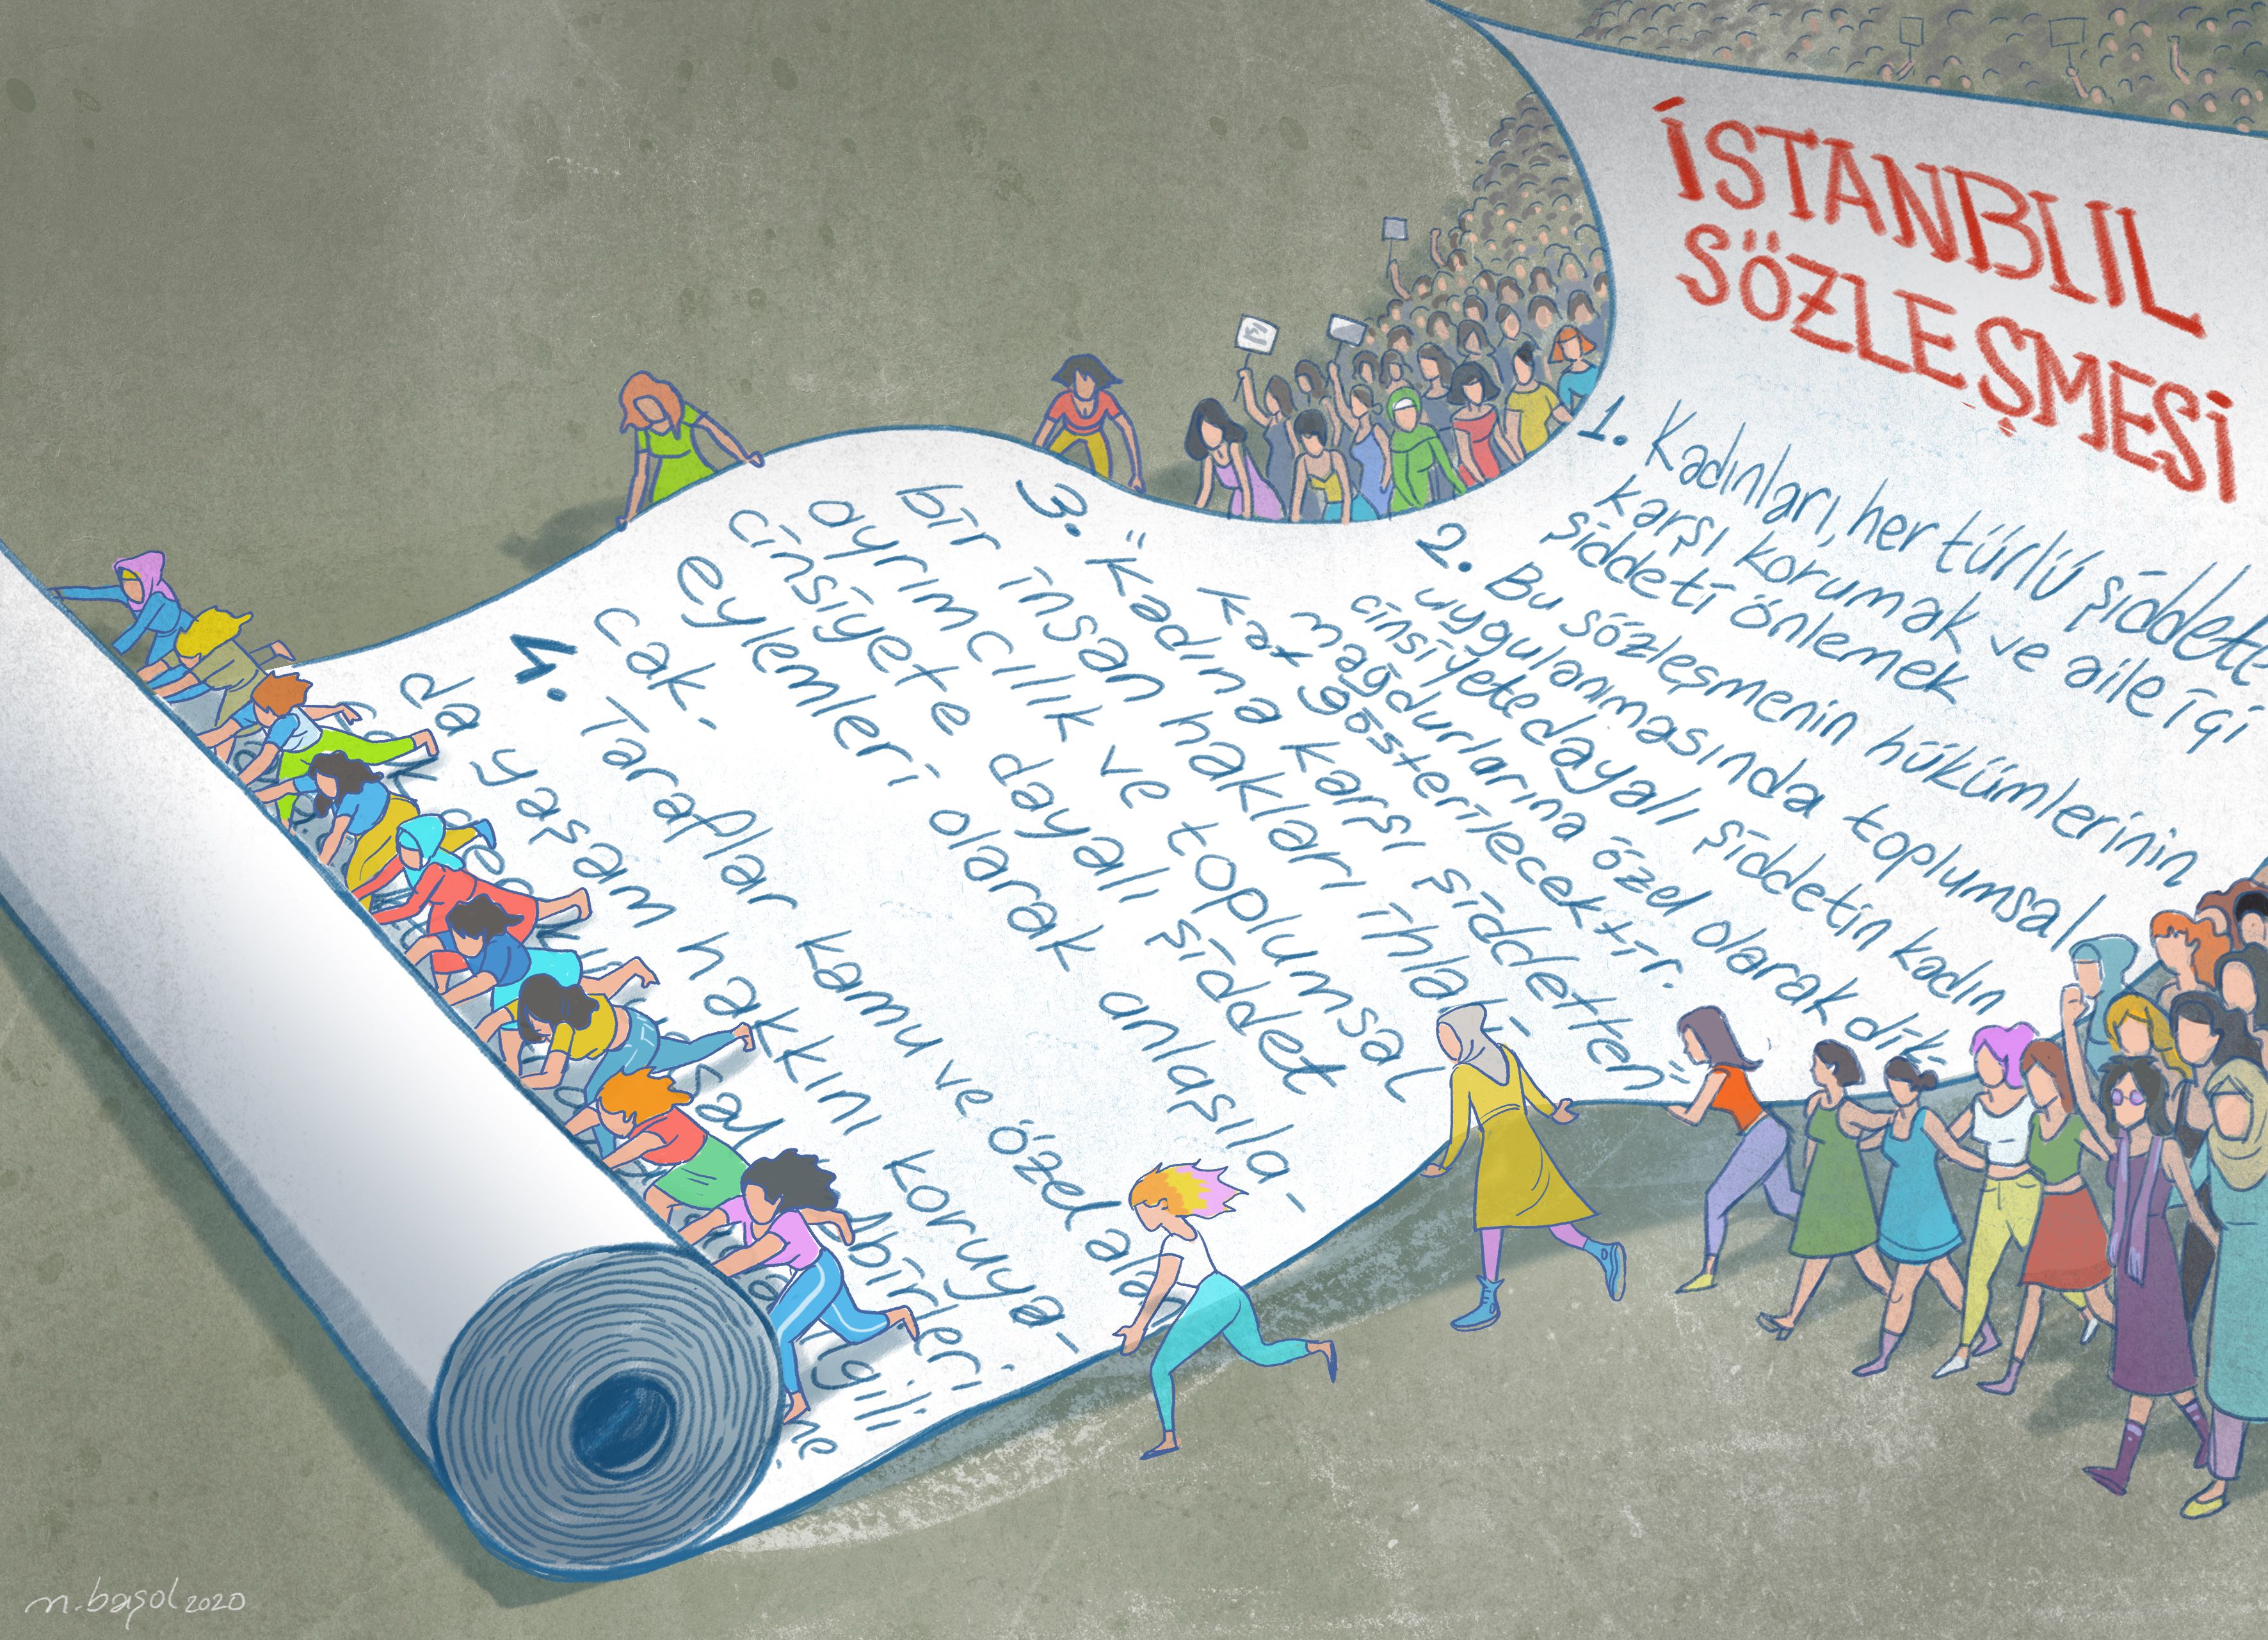 İSTANBUL
SÖZLEŞMESİ
1. Kadınları, her türlü şiddete
karşı korumak ve aile içi
şiddeti önlemek
2. Bu sözleşmenin hükümlerinin
uygulanmasında toplumsal
cinsiyete dayalı şiddetin kadın
mağdurlarına özel olarak dik-
kat gösterilecektir.
3. "Kadına karşı şiddetten"
bir insan hakları ihlali-
ayrımcılık ve toplumsal
cinsiyete dayalı şiddet
eylemleri olarak anlaşıla-
cak.
4. Taraflar kamu ve özel alan
da yaşam hakkını koruya-
n.başol 2020